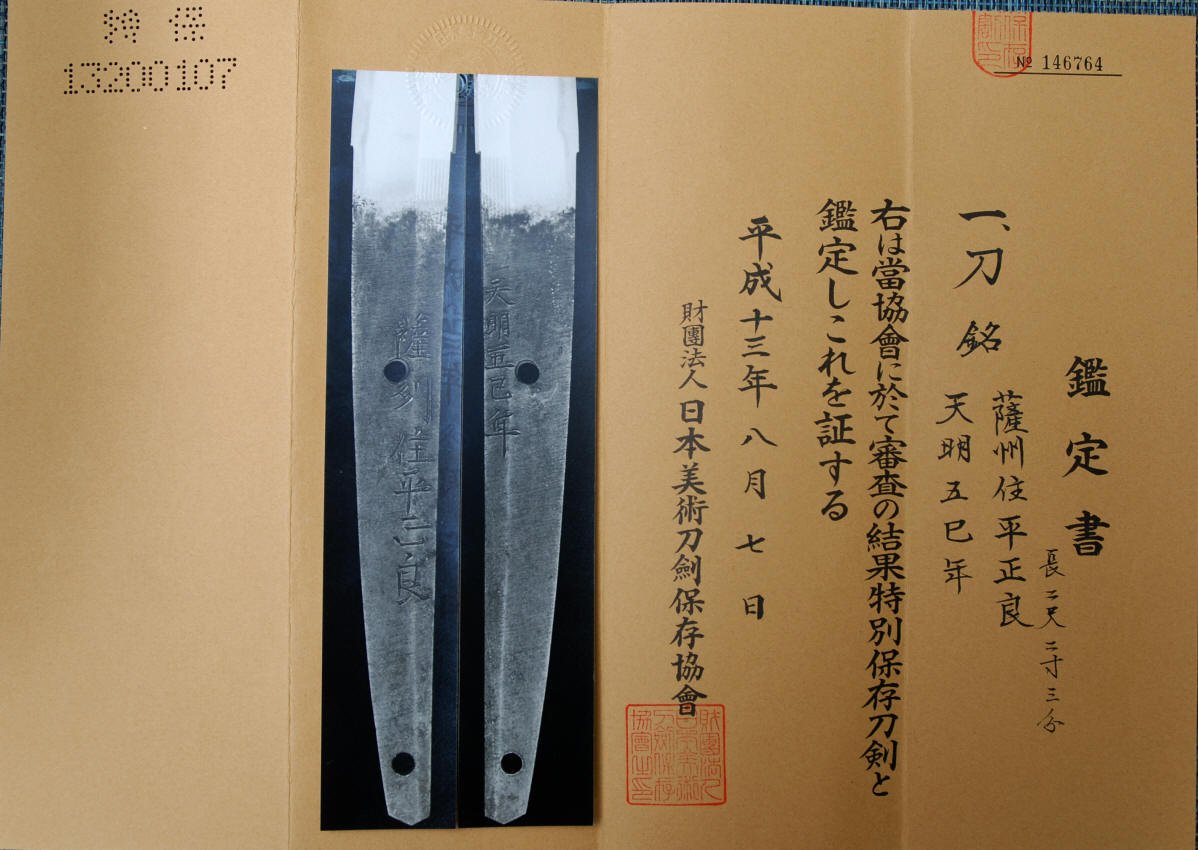 № 146764
鑑定書
一、刀 銘 薩州住平正良
天明五巳年
長二尺二寸三分
右は當協會に於て審査の結果特別保存刀剣と
鑑定しこれを証する
平成十三年八月七日
財團法人日本美術刀劍保存協會
財團法人日本美術刀劍保存協會之印
天明五巳年
薩州住平正良
特保
13200107